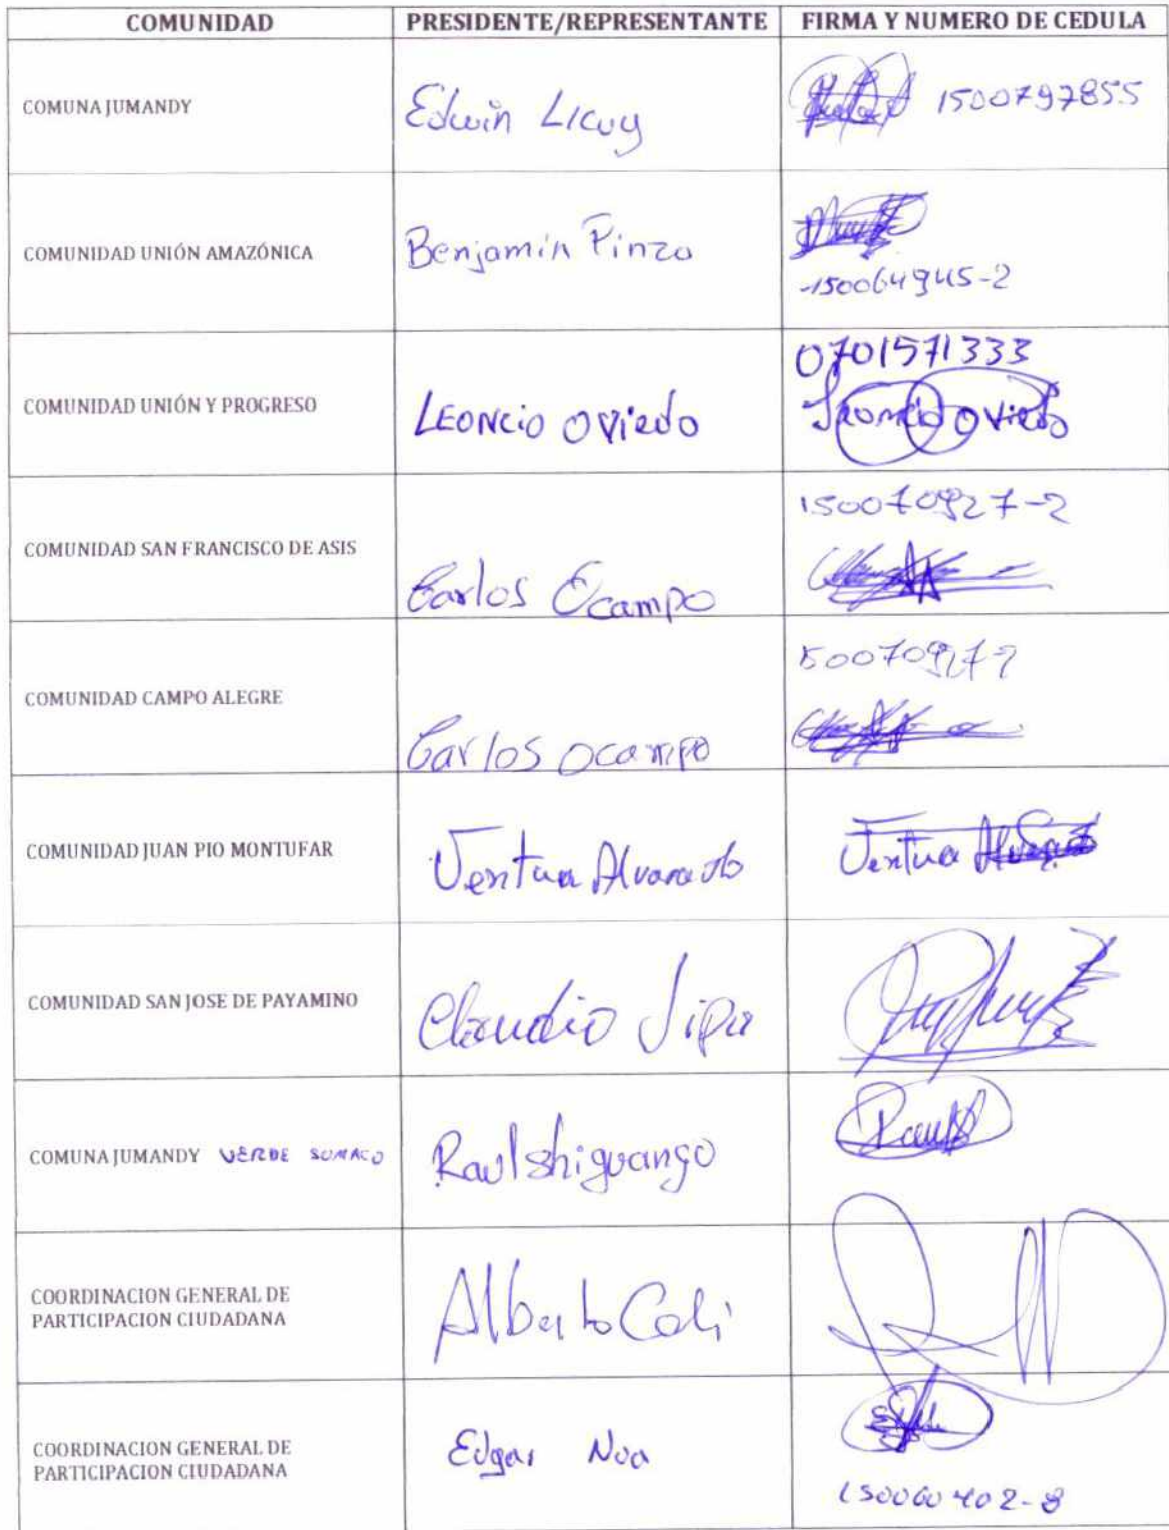 COMUNIDAD PRESIDENTE/REPRESENTANTE FIRMA Y NUMERO DE CEDULA
COMUNA JUMANDY Edwin Licuy 1500797855
COMUNIDAD UNIÓN AMAZÓNICA Benjamin
150064945-2
0701571333
COMUNIDAD UNIÓN Y PROGRESO LEONCIO OVIEDO Leoncio Oviedo
150070927-2
COMUNIDAD SAN FRANCISCO DE ASIS
Carlos Ocampo
COMUNIDAD CAMPO ALEGRE
Carlos Ocampo
COMUNIDAD JUAN PIO MONTUFAR Ventura Alvarado
COMUNIDAD SAN JOSE DE PAYAMINO Claudio
COMUNA JUMANDY VERDE SUMACO Raul Shiguango
COORDINACION GENERAL DE
PARTICIPACION CIUDADANA
Alberto
COORDINACION GENERAL DE
PARTICIPACION CIUDADANA
Edgar Noa
150060402-8